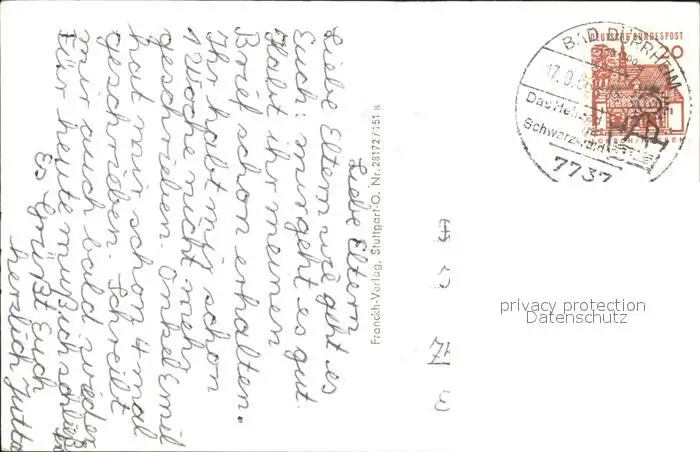 Liebe Eltern
Liebe Eltern wie geht es
Euch: mir geht es gut.
Habt ihr meinen
Brief schon erhalten.
Ihr habt mir schon
1 Woche nicht mehr
geschrieben. Onkel Emil
hat mir schon 4 mal
geschrieben. Schreibt
mir auch bald wieder
Für heute muß ich schließ
Es Grüßt Euch
herzlich Jutta
Franckh-Verlag, Stuttgart-O, Nr. 28172/151 a
DEUTSCHE BUNDESPOST
20
BAD DÜRRHEIM
17.9.6
Das Heilbad
Schwarzwald
7737
privacy protection
Datenschutz